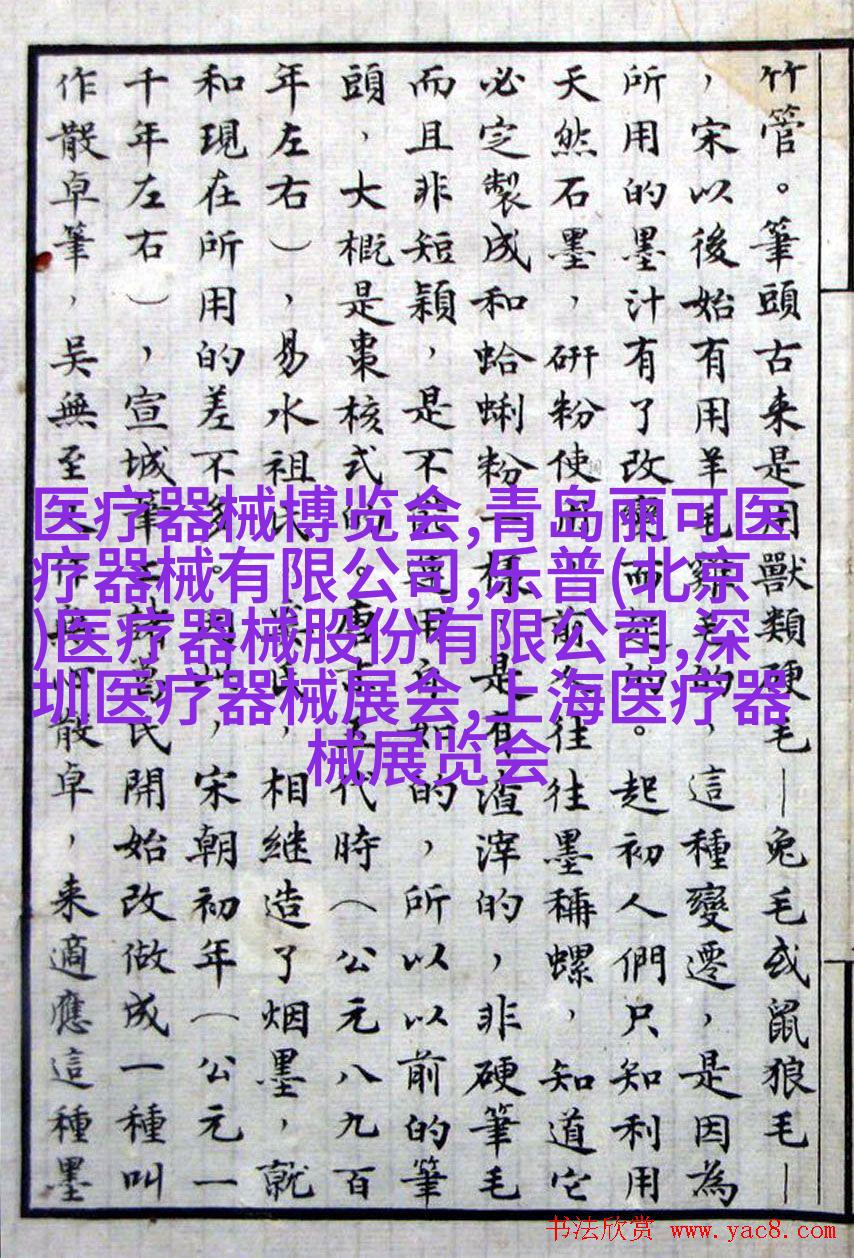 竹管。筆頭古来是用獸類硬毛—兔毛或鼠狼毛—
，宋以後始有用羊毛雞毛的，這種變遷，是因為
所用的墨汁有了改變而起的。起初人們只知利用
天然石墨，研粉使用，前人往往墨稱螺，知道它
必定製成和蛤蜊粉一樣，是有渣滓的，非硬筆毛
而且非短穎，是不能運用自如的，所以以前的筆
頭，大概是棗核式的。唐末五代時（公元八九百
年左右），易水祖氏，相继造了烟墨，就
和現在所用的差不多。因此，宋朝初年（公元一
千年左右），宣城筆工諸葛氏開始改做成一種叫
作散卓筆，吳無至又作無心散卓，来適應這種墨
医疗器械博览会,青岛丽可医
疗器械有限公司,乐普(北京
)医疗器械股份有限公司,深
圳医疗器械展会,上海医疗器
械展览会
书法欣赏 www.yac8.com